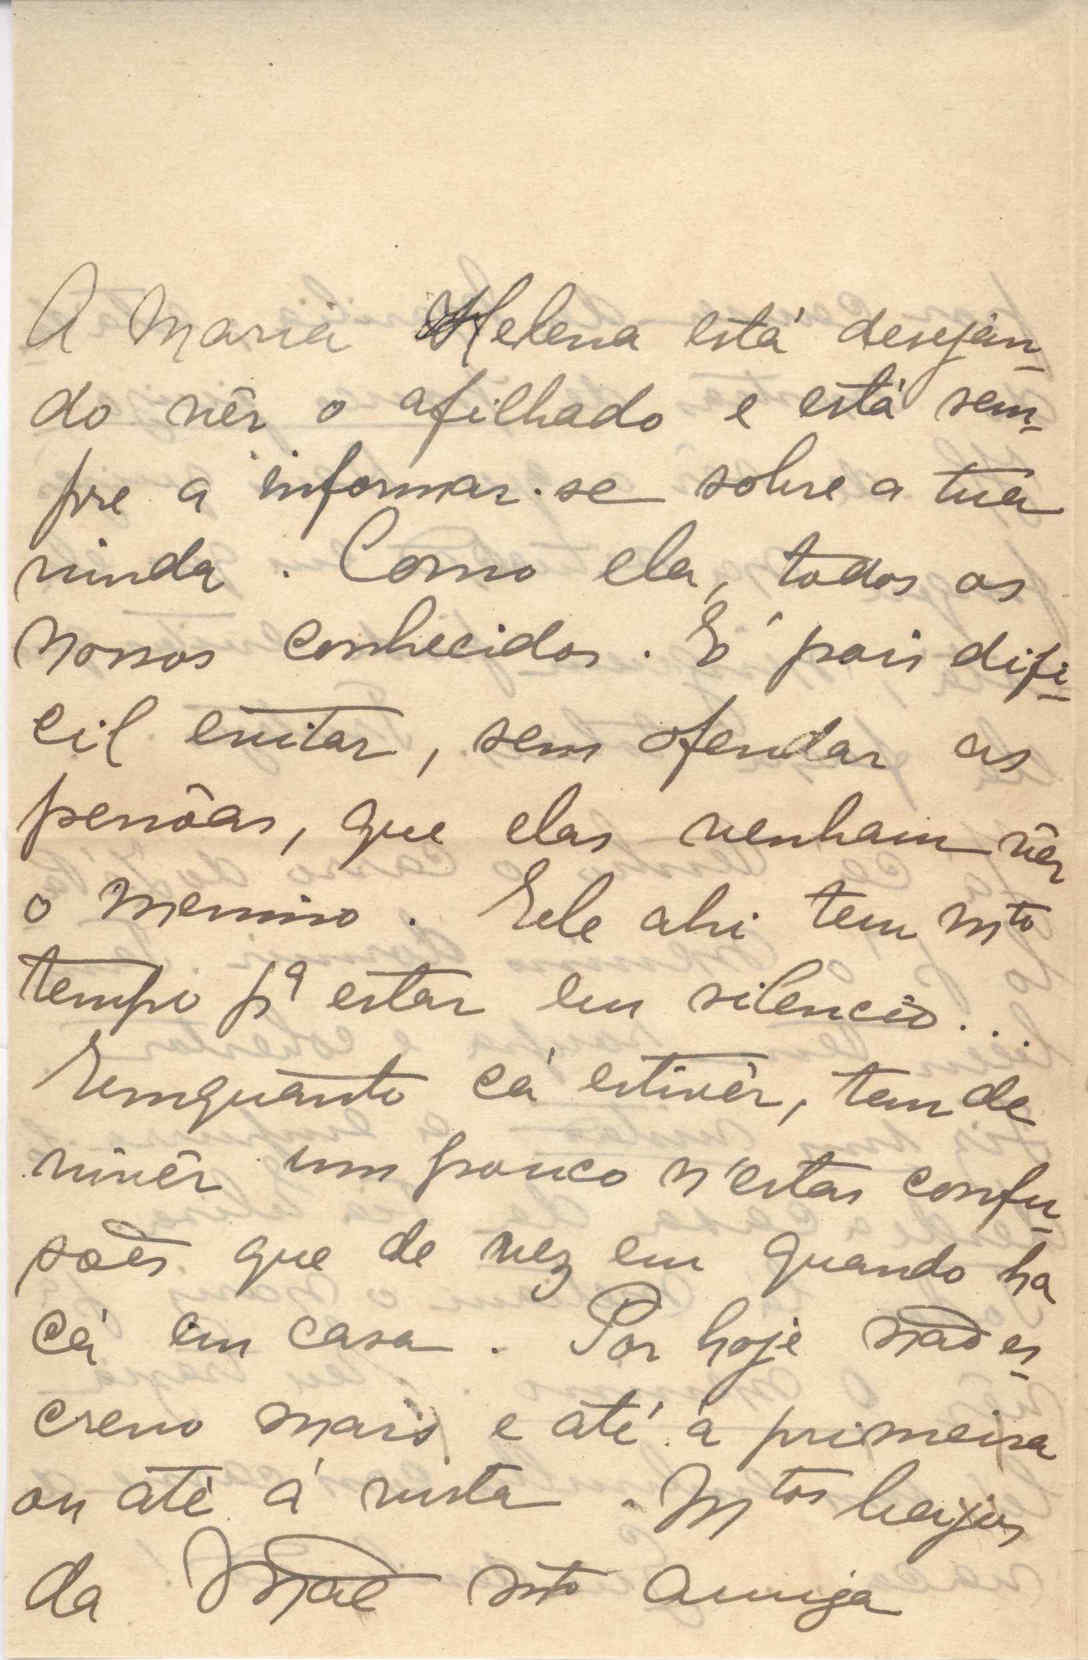 A Maria Helena está desejan-
do vêr o afilhado e está sem-
pre a informar-se sobre a tua
vinda. Como ela, todos os
nossos conhecidos. É pois difi-
cil evitar, sem ofendar as
pessôas, que elas venham vêr
o menino. Ele ahi tem mto
tempo pª estar em silencio...
Emquanto cá estivér, tem de
vivêr um pouco n'estas confu-
sões que de vez em quando ha
cá em casa. Por hoje não es-
crevo mais e até á primeira
ou até á vista. Mtos beijos
da Mãe mto amiga